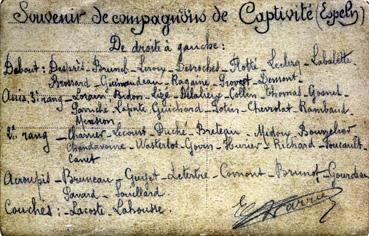 Souvenir de compagnons de Captivité (Espeln)
De droite à gauche :
Debout : Desbriés - Brunel - Leroy - Desroches - Flotté - Leclerq - Labalette
Brossard - Guimandeau - Ragaine - Provost - Dessont -
Assis, 3e rang - Lorain - Budon - Lizé - Delarieux - Collin - Thomas - Gosnet -
Laporte - Guichard - Lotin - Chevrolat - Rambaud -
2e rang - Charrier - Lecourt - Duché - Breteau - Midou - Bourgeliot
Chandavoine - Wasterlot - Govin - Hurier - Richard - Foucault -
Canut
Accroupis - Bruneau - Guyet - Letertre - Comont - Brunot - Gourdeau
Savard - Souillard
Couchés : - Lacoste - Lahousse -